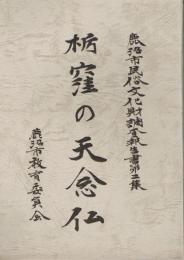 鹿沼市民俗文化財調査報告書第五集
栃窪の天念仏
鹿沼市教育委員会